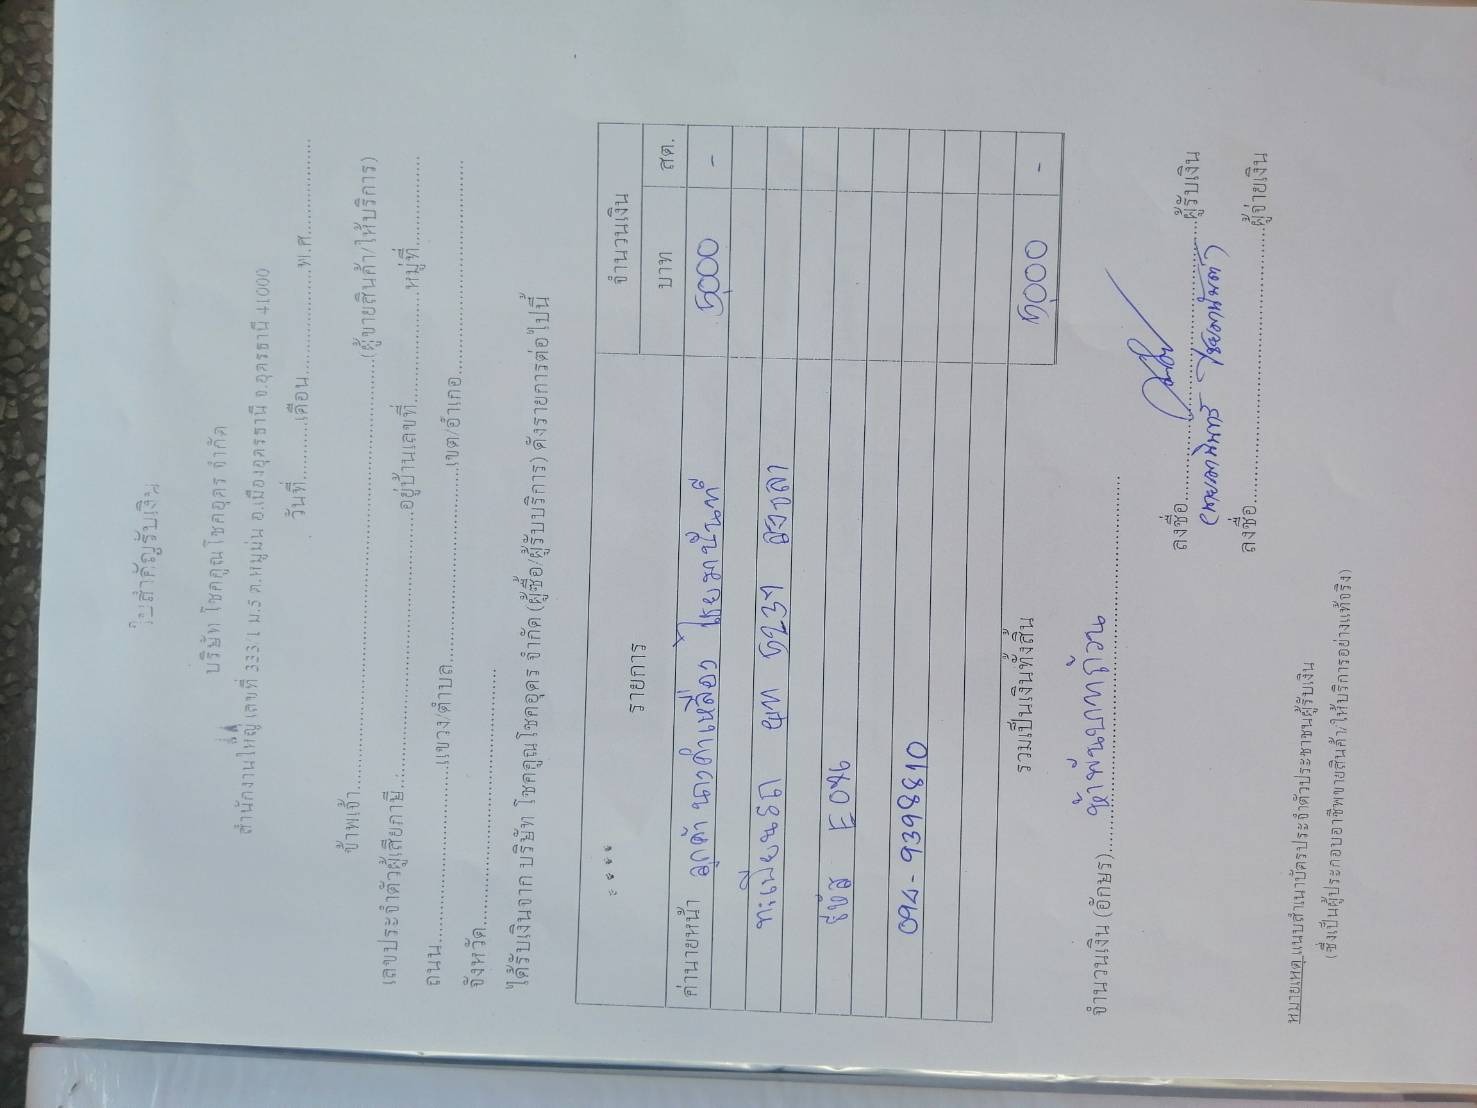 ใบสำคัญรับเงิน
บริษัท โชคคูณโชคอุดร จำกัด
สำนักงานใหญ่ เลขที่ 333/1 ม.5 ต.หมูม่น อ.เมืองอุดรธานี จ.อุดรธานี 41000
วันที่............เดือน....................พ.ศ....................
ข้าพเจ้า....................(ผู้ขายสินค้า/ให้บริการ)
เลขประจำตัวผู้เสียภาษี....................อยู่บ้านเลขที่....................หมู่ที่....................
ถนน....................แขวง/ตำบล....................เขต/อำเภอ....................
จังหวัด....................
ได้รับเงินจาก บริษัท โชคคูณโชคอุดร จำกัด (ผู้ซื้อ/ผู้รับบริการ) ดังรายการต่อไปนี้
รายการ จำนวนเงิน
บาท สต.
ค่านายหน้า ลูกค้า นาวดำเหลือง 5,000 -
ทะเบียนรถ 5239 สงขลา
094-9398810
รวมเป็นเงินทั้งสิ้น 5,000 -
จำนวนเงิน (อักษร).....ห้าพันบาทถ้วน....................
ลงชื่อ....................ผู้รับเงิน
ลงชื่อ....................ผู้จ่ายเงิน
หมายเหตุ แนบสำเนาบัตรประจำตัวประชาชนผู้รับเงิน
(ซึ่งเป็นผู้ประกอบอาชีพขายสินค้า/ให้บริการอย่างแท้จริง)